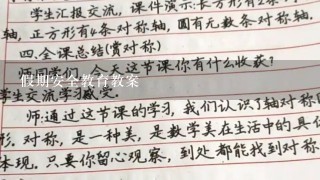 学生汇报交流，课件演示：长方形有2条
轴，正方形有4条对称轴，圆有无数条对称轴.
四.全课总结（赏对称）
今天这节课你有什么收获？
假期安全教育教案
学生交流学习
师：通过这节课的学习，我们认识了轴对称
形.对称，是一种美，是数学美在生活中的具
本现.只要你留心观察，到处都能找到对称